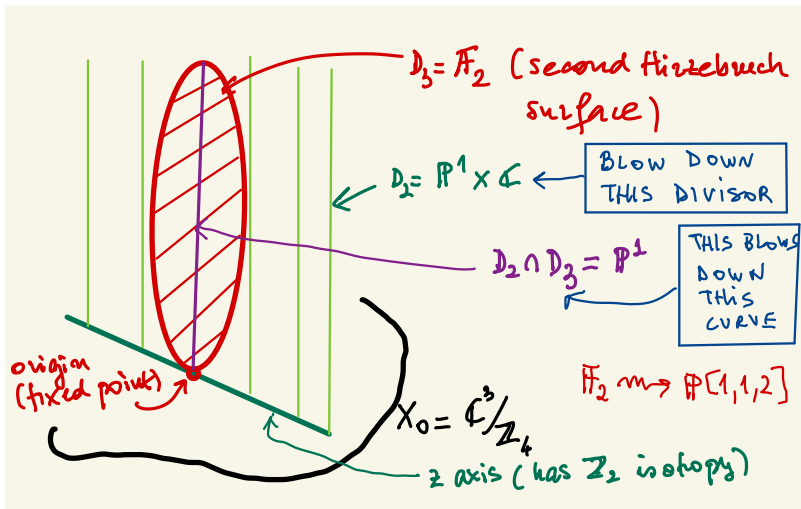 D₃ = F₂ (second Hirzebruch
surface)
D₂ = ℙ¹ × ℂ
BLOW DOWN
THIS DIVISOR
D₂ ∩ D₃ = ℙ¹
THIS BLOWS
DOWN
THIS
CURVE
origin
(fixed point)
F₂ ⇝ ℙ[1,1,2]
X₀ = ℂ³/ℤ₄
z axis (has ℤ₂ isotropy)